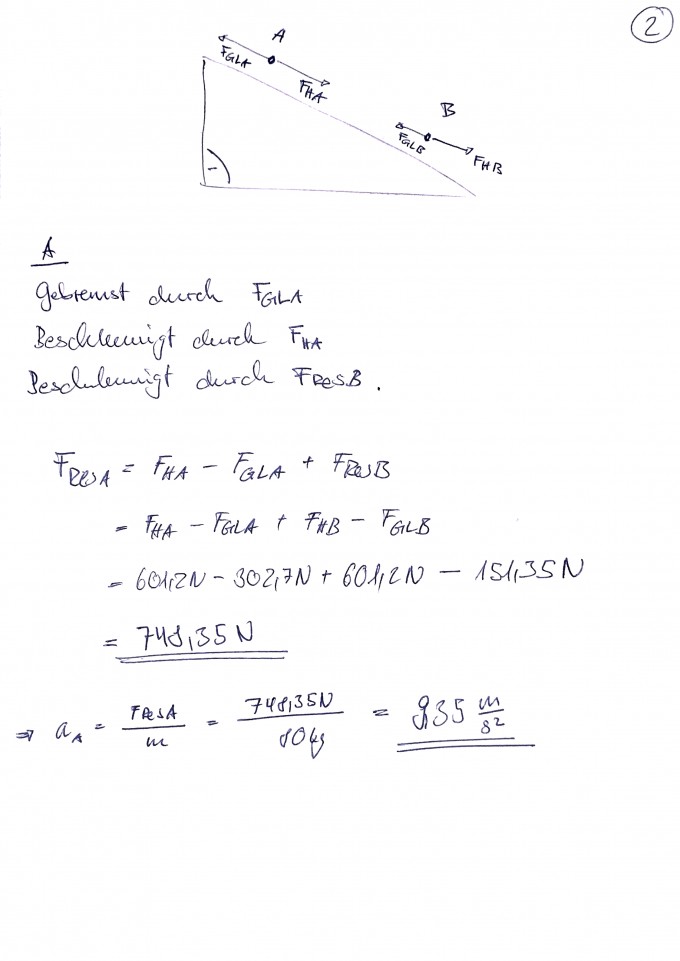 2
A
F_GLA
F_HA
B
F_GLB
F_HB
A
Gebremst durch F_GLA
Beschleunigt durch F_HA
Beschleunigt durch F_Res.B.
F_ResA = F_HA - F_GLA + F_ResB
= F_HA - F_GLA + F_HB - F_GLB
= 601,2N - 302,7N + 601,2N - 151,35N
= 748,35N
⇒ a_A = F_ResA / m = 748,35N / 80kg = 9,35 m/s²